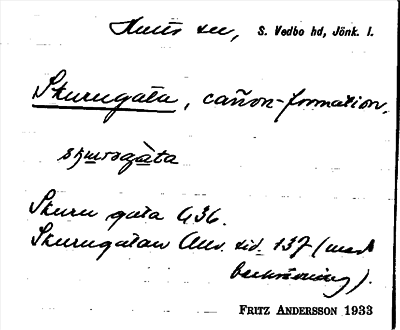 Hults sn, S. Vedbo hd, Jönk. l.
Skurugata, cañon-formation.
Skuru gata G36.
Skurugatan Allv. sid. 137 (med
beskrivning).
FRITZ ANDERSSON 1933